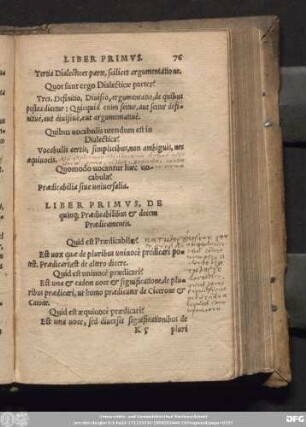 LIBER PRIMVS. 76
Tertia Dialectices pars, scilicet argumentatione.
Quot sunt ergo Dialecticæ partes?
Tres. Definitio, Diuisio, argumentatio, de quibus
postea dicetur: Quicquid enim scitur, aut scitur defi-
nitiuè, aut diuisiuè, aut argumentatiuè.
Quibus vocabulis vtendum est in
Dialectica?
Vocabulis certis, simplicibus, non ambiguis, nec
æquiuocis.
Quomodo vocantur hæc vo-
cabula?
Prædicabilia siue vniuersalia.
LIBER PRIMVS, DE
quinq; Prædicabilibus & decem
Prædicamentis.
Quid est Prædicabile?
Est vox quæ de pluribus vniuocè prædicari po-
test. Prædicari, est de altero dicere.
Quid est vniuocè prædicari?
Est vna & eadem voce & significatione, de plu
ribus prædicari, vt homo prædicatur de Cicerone &
Catone.
Quid est æquiuocè prædicari?
Est vna voce, sed diuersis significationibus de
K 5 pluri